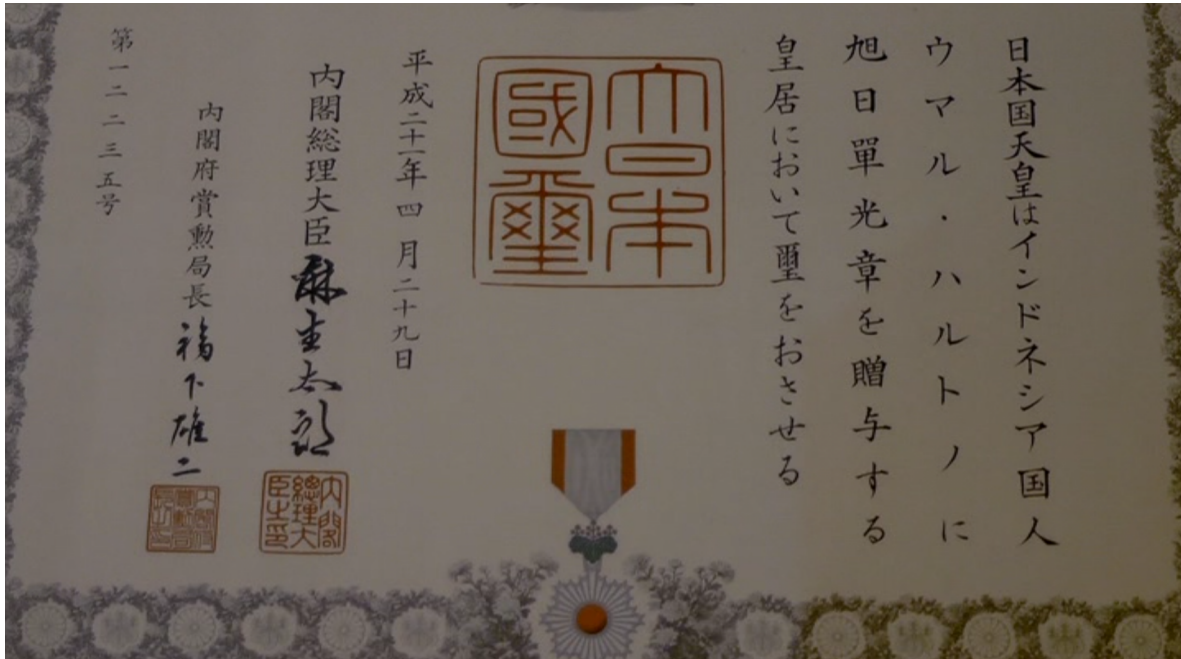 日本国天皇はインドネシア国人
ウマル・ハルトノに
旭日單光章を贈与する
皇居において璽をおさせる
大日本
國璽
平成二十一年四月二十九日
内閣総理大臣 麻生太郎
内閣
總理大
臣之印
内閣府賞勲局長 福下雄二
第一二二三五号